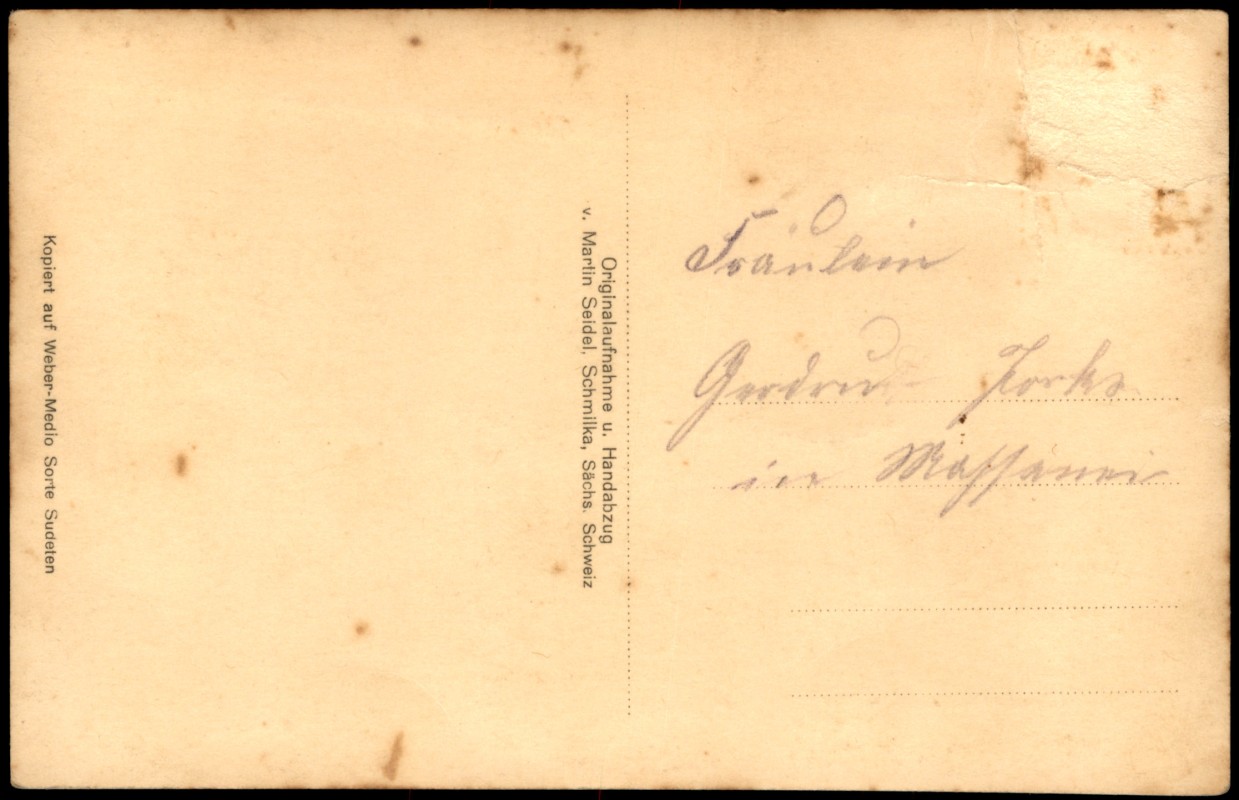 Kopiert auf Weber-Medio Sorte Sudeten
Originalaufnahme u. Handabzug
v. Martin Seidel, Schmilka, Sächs. Schweiz
Fräulein
in